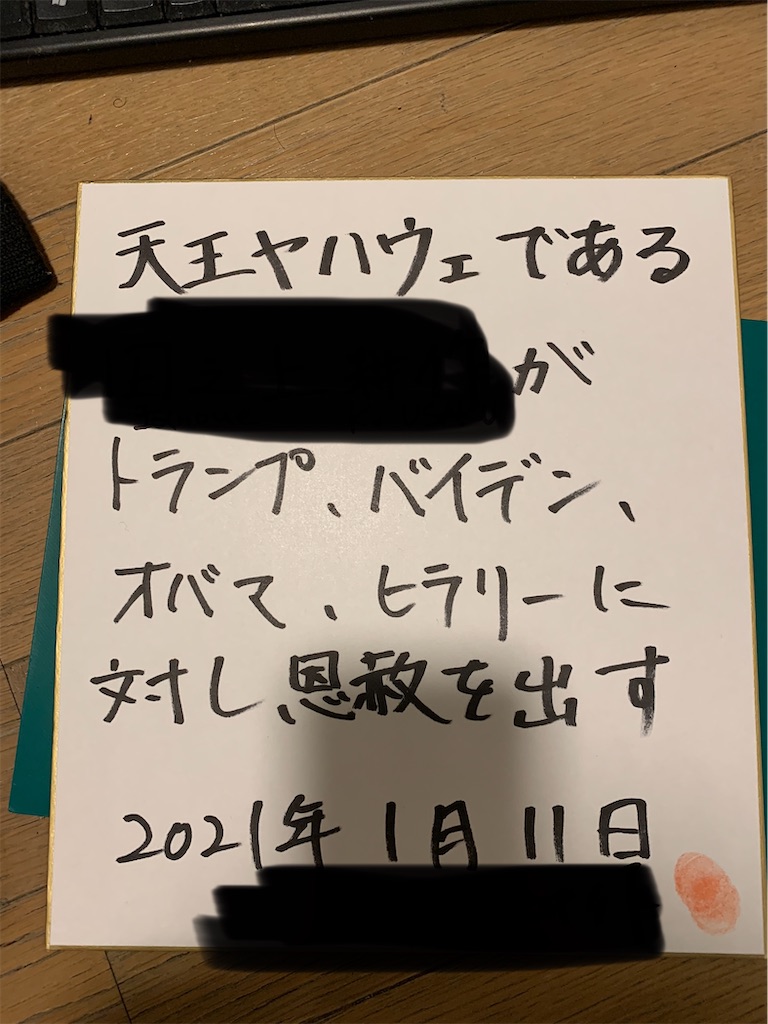 天王ヤハウェである
が
トランプ、バイデン、
オバマ、ヒラリーに
対し恩赦を出す
2021年1月11日